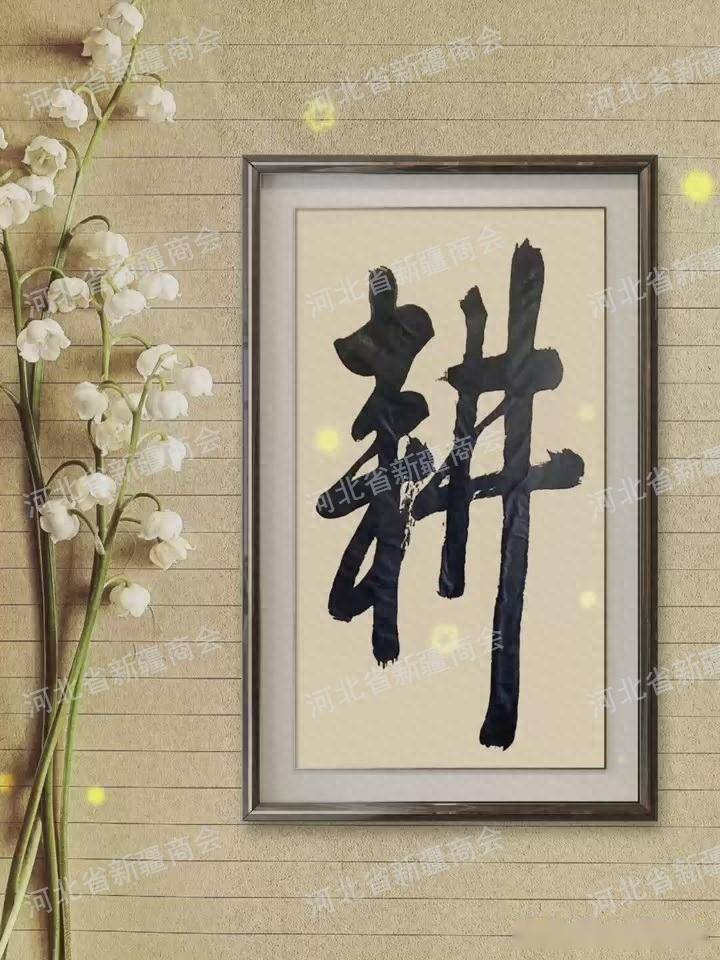 耕
河北省新疆商会
河北省新疆商会
河北省新疆商会
河北省新疆商会
河北省新疆商会
河北省新疆商会
河北省新疆商会
河北省新疆商会
河北省新疆商会
河北省新疆商会
河北省新疆商会
河北省新疆商会